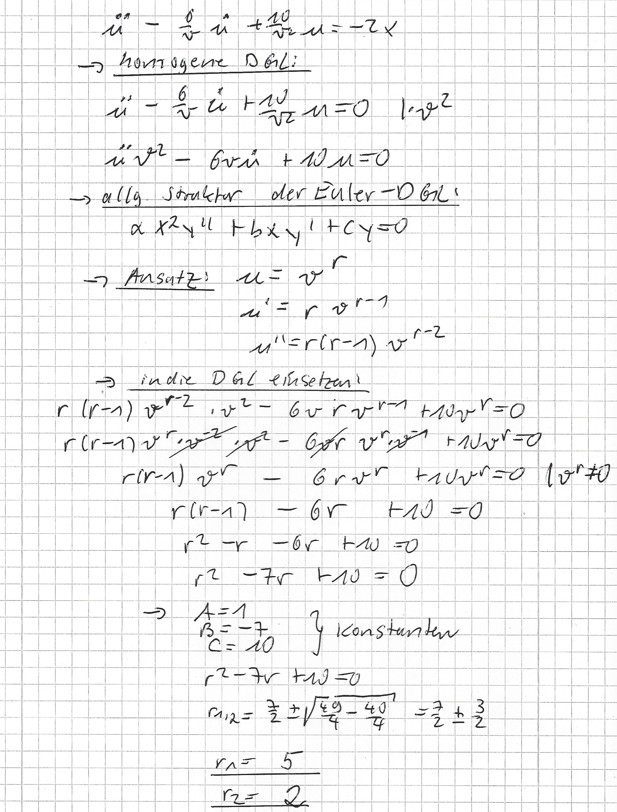 ü - 6/v u̇ + 10/v² u = -2x
→ homogene DGL:
ü - 6/v u̇ + 10/v² u = 0 |·v²
ü v² - 6vu̇ + 10u = 0
→ allg. struktur der Euler-DGL:
a x²y'' + bxy' + cy = 0
→ Ansatz: u = v^r
u' = r v^(r-1)
u'' = r(r-1) v^(r-2)
→ in die DGL einsetzen:
r(r-1) v^(r-2) · v² - 6v r v^(r-1) + 10v^r = 0
r(r-1) v^r · v^(-2) · v² - 6vr v^r · v^(-1) + 10v^r = 0
r(r-1) v^r - 6r v^r + 10v^r = 0 | v^r ≠ 0
r(r-1) - 6r + 10 = 0
r² - r - 6r + 10 = 0
r² - 7r + 10 = 0
→ A = 1
B = -7 } Konstanten
C = 10
r² - 7r + 10 = 0
r1,2 = 7/2 ± √(49/4 - 40/4) = 7/2 ± 3/2
r1 = 5
r2 = 2